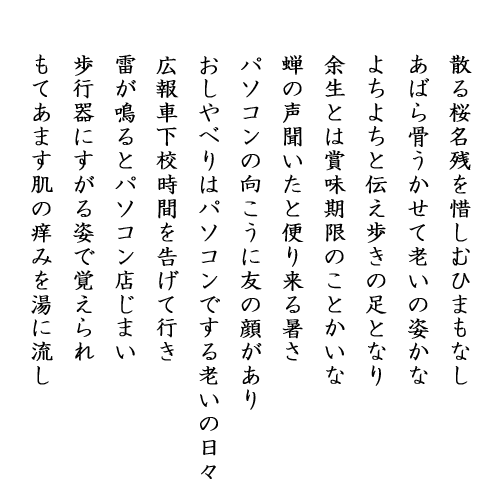 散る桜名残を惜しむひまもなし
あばら骨うかせて老いの姿かな
よちよちと伝え歩きの足となり
余生とは賞味期限のことかいな
蝉の声聞いたと便り来る暑さ
パソコンの向こうに友の顔があり
おしやべりはパソコンでする老いの日々
広報車下校時間を告げて行き
雷が鳴るとパソコン店じまい
歩行器にすがる姿で覚えられ
もてあます肌の痒みを湯に流し